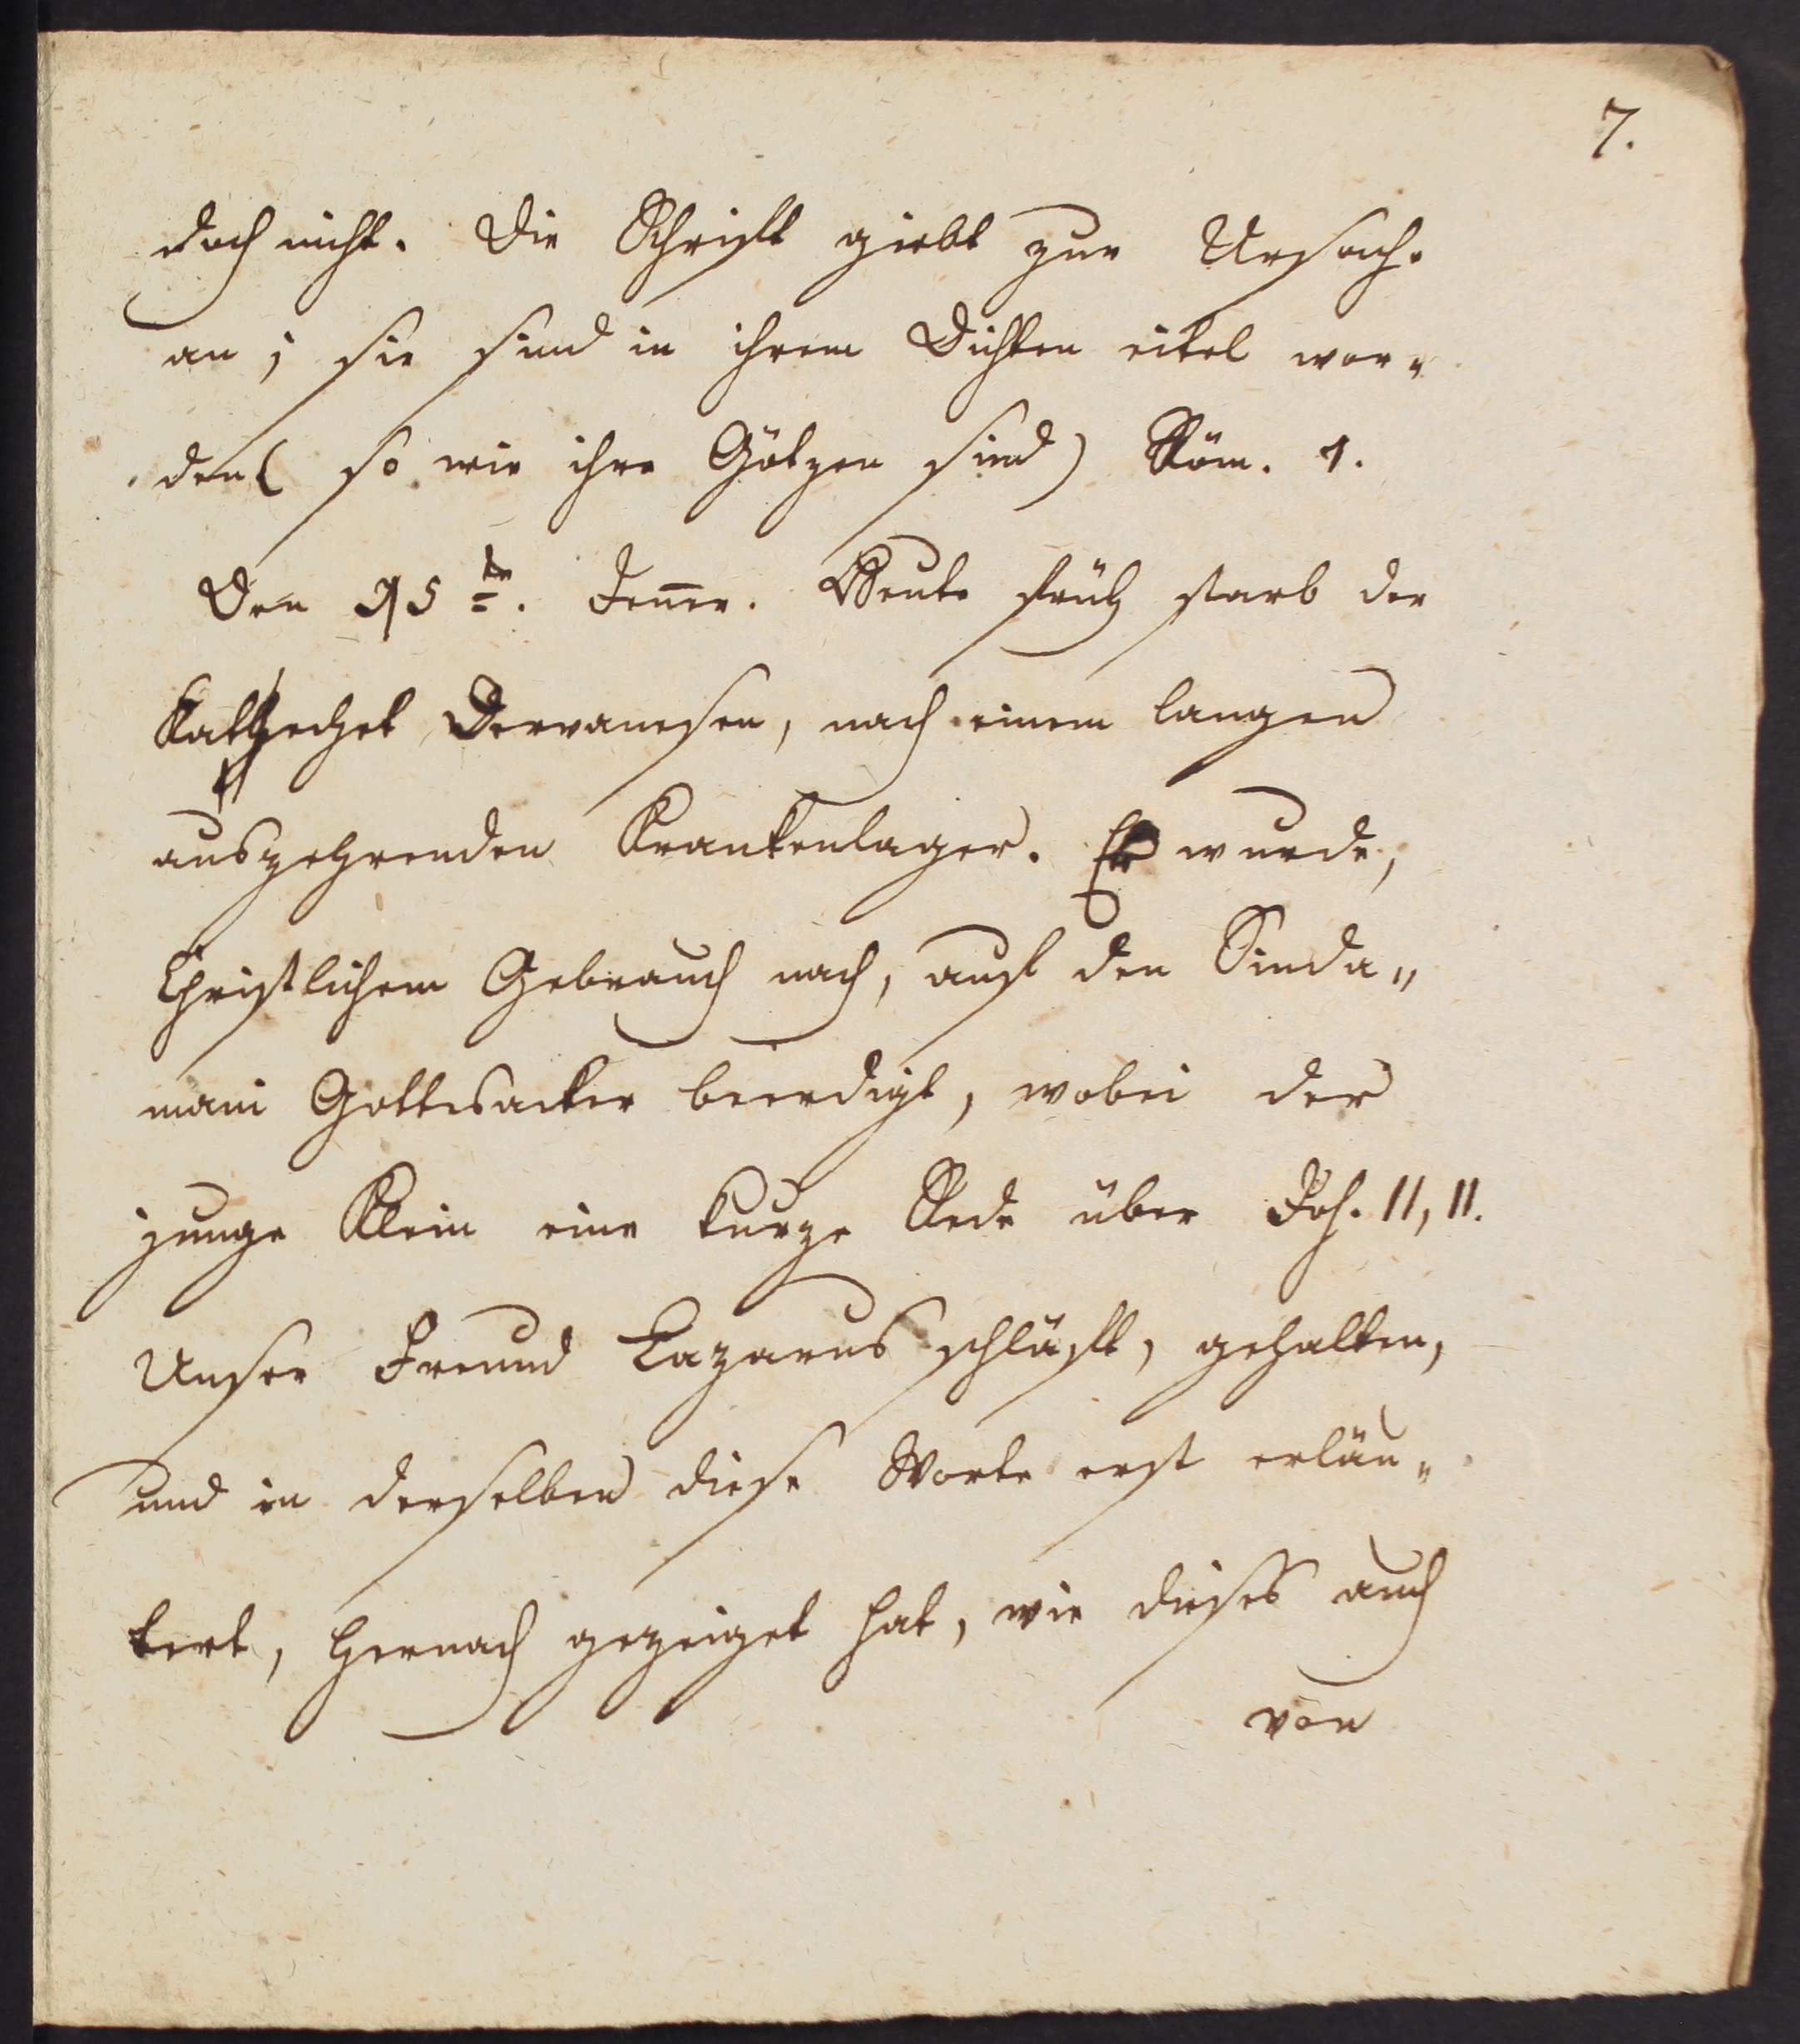 7.
doch nicht. Die Schrift giebt zur Ursach.
an; sie sind in ihrem Dichten eitel wor„
den (so wie ihre Götzen sind) Röm. 1.
Den 15te. Jen̄er. Heute früh starb der
Kathechet Dewanesen, nach einem langen
auszehrenden Krankenlager. Er wurde,
Christlichem Gebrauch nach, auf den Sinda„
mani Gottesacker beerdigt, wobei der
junge Klein eine kurze Rede über Joh. 11, 11.
Unser Freund Lazarus schläft, gehalten,
und in derselben diese Worte erst erläu„
tert, hernach gezeiget hat, wie dieses auch
von